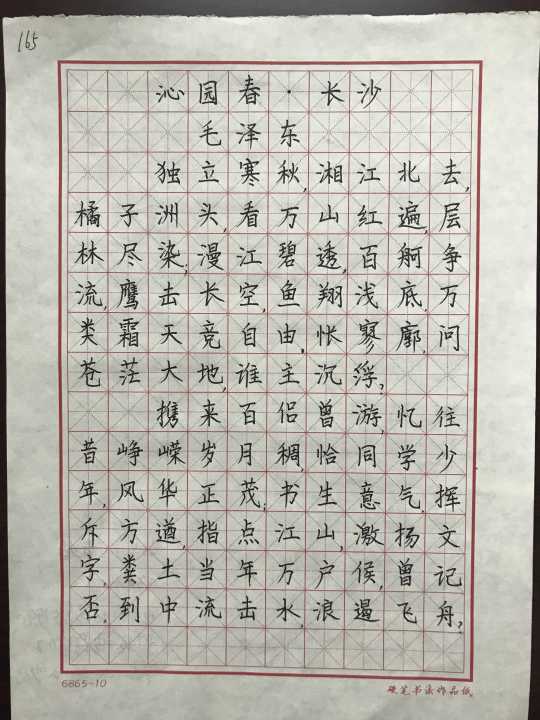 165
沁园春·长沙
毛泽东
独立寒秋,湘江北去,
橘子洲头,看万山红遍,层
林尽染;漫江碧透,百舸争
流,鹰击长空,鱼翔浅底,万
类霜天竞自由,怅寥廓,问
苍茫大地,谁主沉浮?
携来百侣曾游,忆往
昔峥嵘岁月稠,恰同学少
年,风华正茂;书生意气,挥
斥方遒,指点江山,激扬文
字,粪土当年万户侯,曾记
否,到中流击水,浪遏飞舟?
6865-10
硬笔书法作品纸